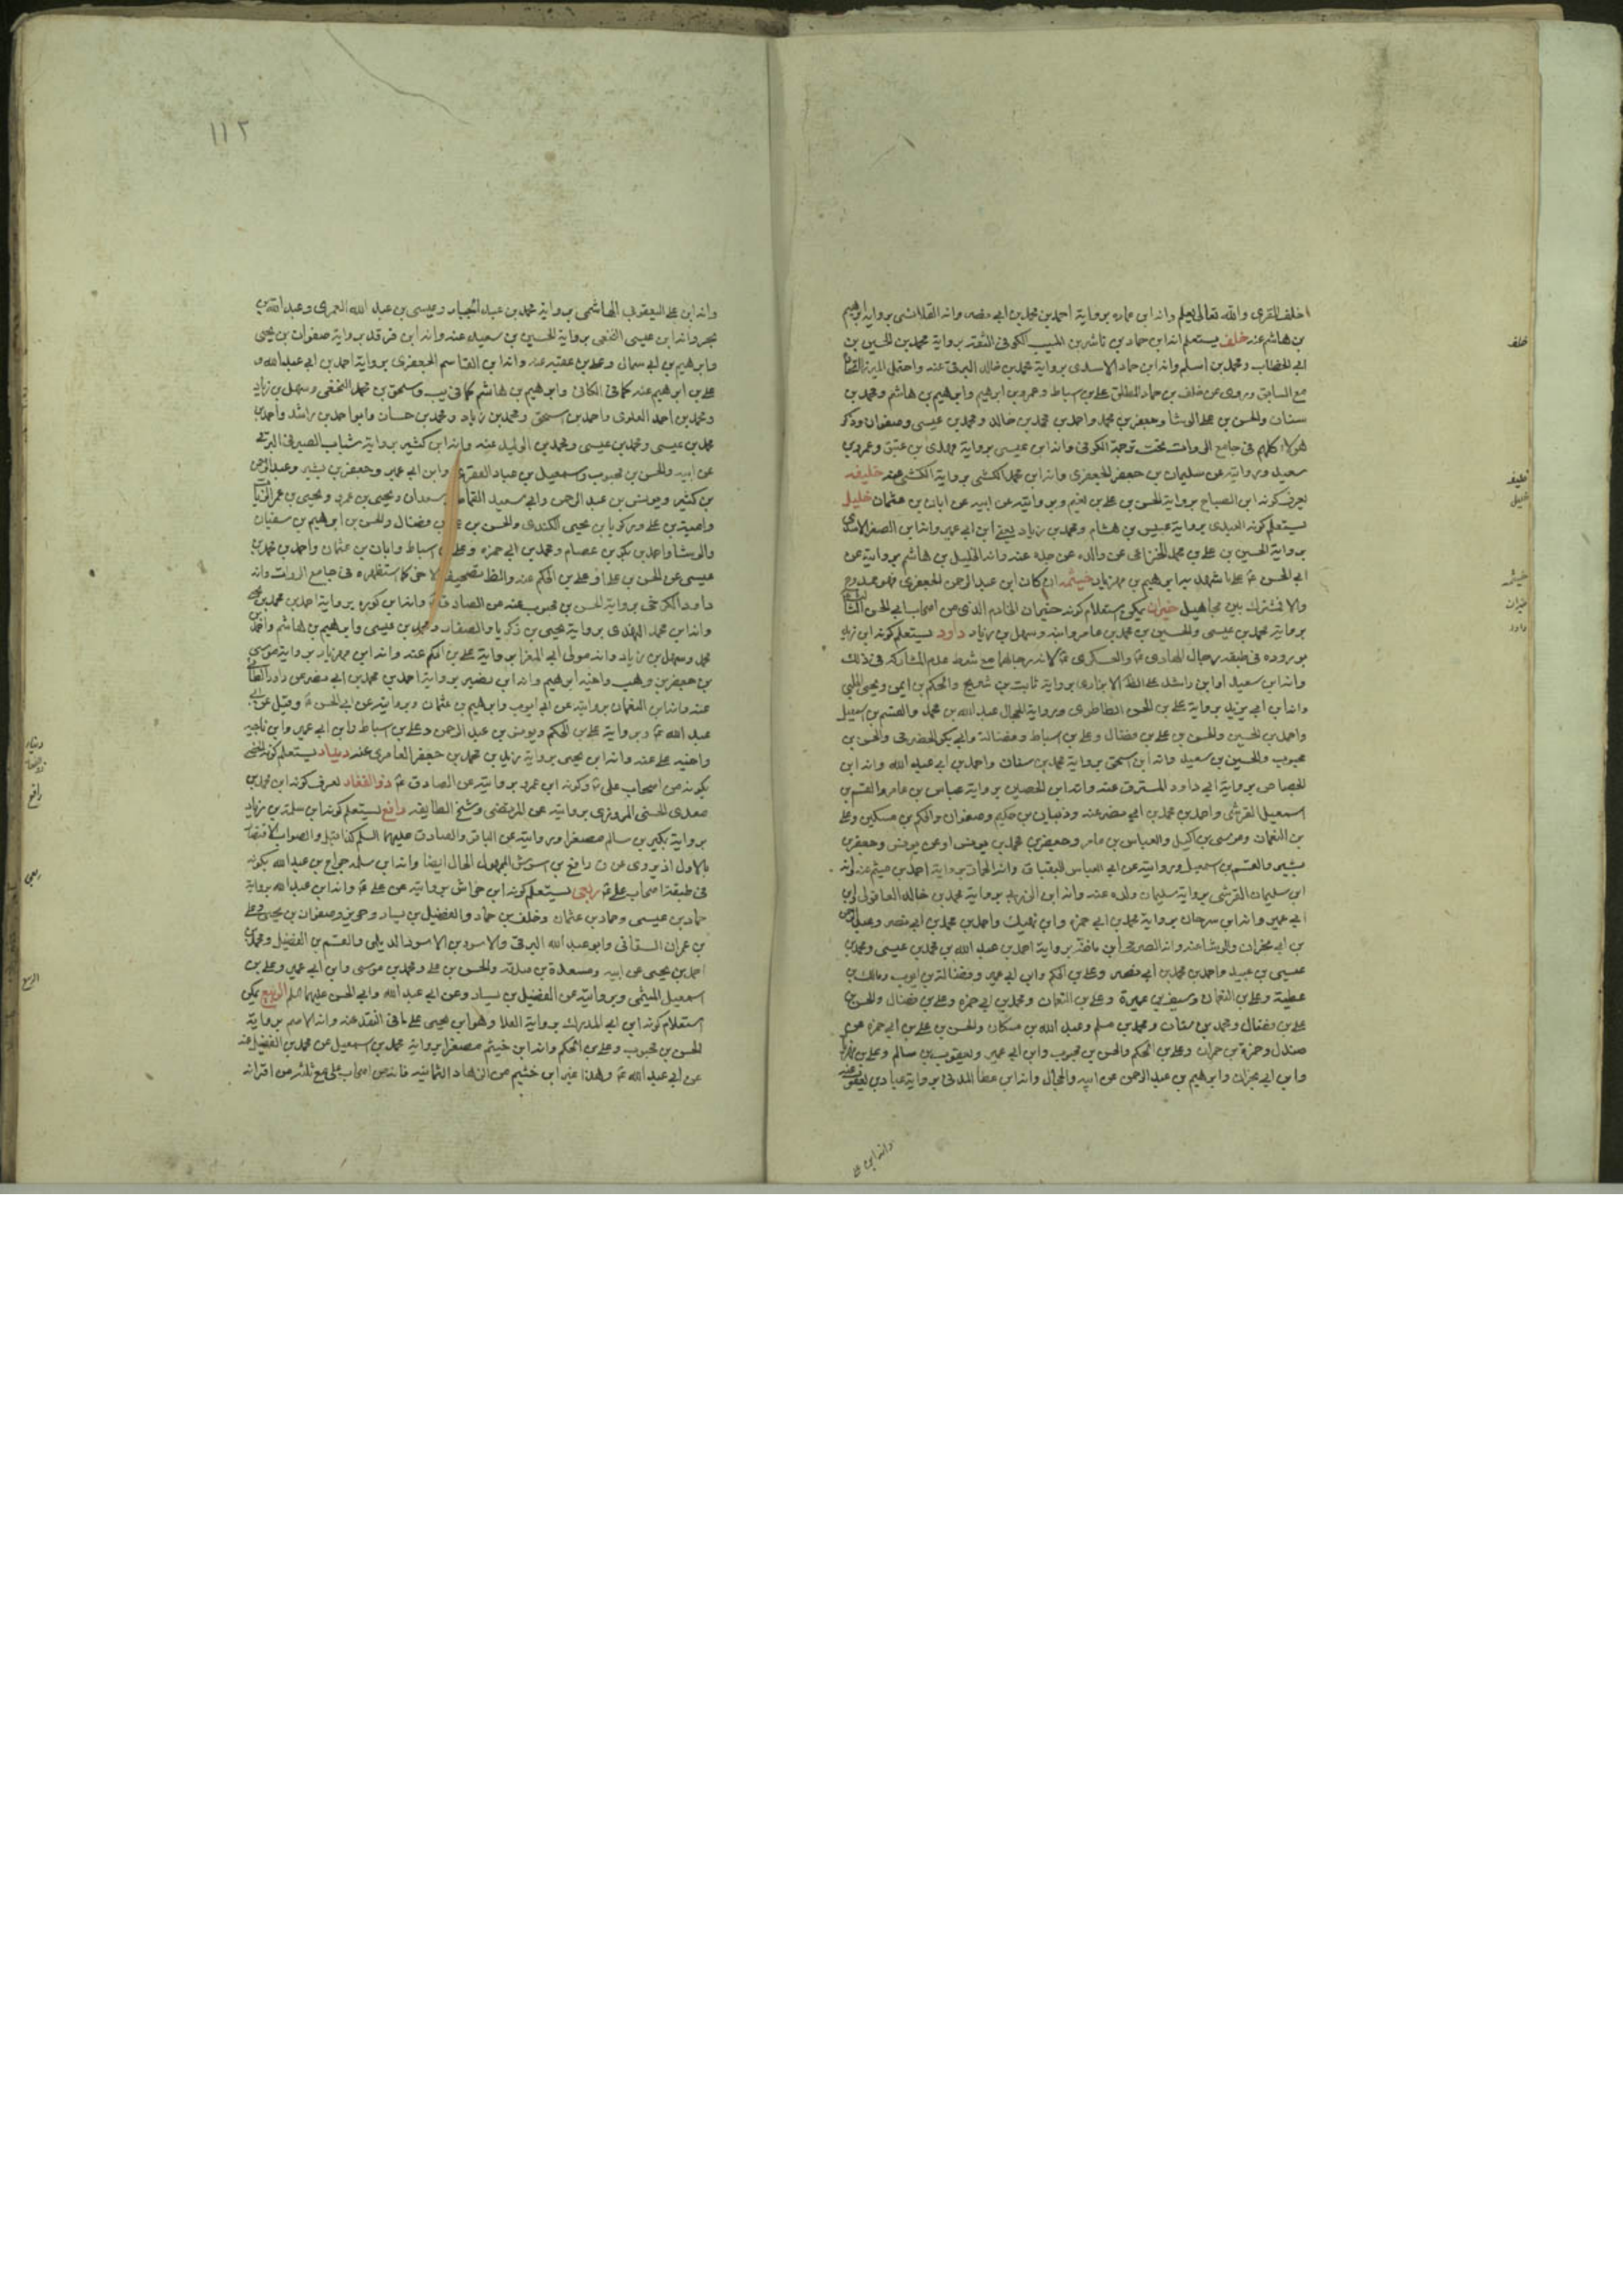 خلف المقرى والله تعالى يعلم وانه ابن عماره برواية احمد بن محمد بن ابى نصر وانه القلانسى برواية ابرهيم
بن هاشم عنه خلف يستعلم انه ابن حماد بن ناشر بن المسيب الكوفى الثقة برواية محمد بن الحسين بن
ابى الخطاب ومحمد بن اسلم وانه ابن حماد الاسدى برواية محمد بن خالد البرقى عنه واحتمل الميرزا
مع السابق وروى عن خلف بن حماد المطلق على بن اسباط وعمرو بن ابراهيم وابرهيم بن هاشم ومحمد بن
سنان والحسن بن على الوشا وجعفر بن محمد واحمد بن محمد بن خالد ومحمد بن عيسى وصفوان وذكر
هؤلاء كلهم فى جامع الروات تحت ترجمة الكوفى وانه ابن عيسى برواية
سعيد وبروايته عن سليمان بن جعفر الجعفرى وانه ابن محمد الكشى برواية الكشى عنه خليفه
يعرف كونه ابن الصباح برواية الحسن بن على بن نعيم وبروايته عن ابيه عن ابان بن عثمان خليل
يستعلم كونه العبدى برواية عبيس بن هشام ومحمد بن زياد يعنى ابن ابى عمير وانه ابن الصفر الاسدى
برواية الحسين بن على بن محمد الخزاعى عن والده عن جده عنه وانه الخليل بن هاشم بروايته عن
ابى الحسن ع على ما شهد به ابرهيم بن مهزيار خيثمه ان كان ابن عبد الرحمن الجعفرى فهو ممدوح
والا فمشترك بين مجاهيل خيران يمكن استعلام كونه خيران الخادم الذى من اصحاب ابى الحسن الثالث
برواية محمد بن عيسى والحسين بن محمد بن عامر وابنه وسهل بن زياد داود يستعلم كونه ابن
بوروده فى طبقه رجال الهادى ع والعسكرى ع لانه رجالهما مع شرط عدم المشاركه فى ذلك
وانه ابن سعيد او ابن راشد على الظ الابزارى برواية ثابت بن شريح والحكم بن ايمن ويحيى الحلبى
وانه ابن ابى يزيد برواية على بن الحسن الطاطرى وبرواية الحجال عبد الله بن محمد والقسم بن اسمعيل
واحمد بن الحسين والحسن بن على بن فضال وعلى بن اسباط وفضالة وابى بكر الحضرمى والحسن بن
محبوب والحسين بن سعيد وانه ابن اسحق برواية محمد بن سنان واحمد بن ابى عبد الله وانه ابن
الجصاص برواية ابى داود المسترق عنه وانه ابن الحصين برواية عباس بن عامر والقسم بن
اسمعيل القرشى واحمد بن محمد بن ابى نصر عنه وذبيان بن حكيم وصفوان والحكم بن مسكين وعلى
بن النعمان وموسى بن اكيل والعباس بن عامر وجعفر بن محمد بن يونس او عن يونس وجعفر بن
بشير والقسم بن اسمعيل وبروايته عن ابى العباس البقباق وانه الحمار برواية احمد بن ميثم عنه وانه
ابن سليمان القرشى برواية سليمان ولده عنه وانه ابن الزبرقان برواية محمد بن خالد العاقولى وابن
ابى عمير وانه ابن سرحان برواية محمد بن ابى حمزه وابن نهيك واحمد بن محمد بن ابى نصر وعبد الرحمن
بن ابى نجران والوشا عنه وانه الصرمى ابن مافنه برواية احمد بن عبد الله بن محمد بن عيسى ومحمد بن
عيسى بن عبيد واحمد بن محمد بن ابى نصر وعلى بن الحكم وابن ابى عمير وفضالة بن ايوب ومالك بن
عطية وعلى بن النعمان وسيف بن عميرة وعلى بن النعمان ومحمد بن ابى حمزه وعلى بن فضال والحسن بن
على بن فضال ومحمد بن سنان ومحمد بن مسلم وعبد الله بن مسكان والحسن بن على بن ابى حمزه عن
صندل وحمزة بن حمران وعلى بن الحكم والحسن بن محبوب وابن ابى عمير ويعقوب بن سالم وعلى بن مهزيار
وابن ابى نجران وابرهيم بن عبد الرحمن عن ابيه والحجال وانه ابن عطا المدنى برواية عباد بن يعقوب عنه
وانه ابن على
خلف
خليفه
خليل
خيثمه
خيران
داود
١١٢
وانه ابن على اليعقوبى الهاشمى برواية محمد بن عبد الجبار وعيسى بن عبد الله العمرى وعبد الله بن
بحر وانه ابن عيسى النخعى برواية الحسين بن سعيد عنه وانه ابن فرقد برواية صفوان بن يحيى
وابرهيم بن ابى سمال وعلى بن عقبه عنه وانه ابن القاسم الجعفرى برواية احمد بن ابى عبد الله و
على بن ابرهيم عنه كما فى الكافى وابرهيم بن هاشم كما فى يب واسحق بن محمد النخعى وسهل بن زياد
ومحمد بن احمد العلوى واحمد بن اسحق ومحمد بن زياد ومحمد بن حسان وابو احمد بن راشد واحمد بن
محمد بن عيسى ومحمد بن عيسى ومحمد بن الوليد عنه وانه ابن كثير برواية شباب الصيرفى الرقى
عن ابيه والحسن بن محبوب واسمعيل بن عباد القصرى وابن ابى عمير وجعفر بن بشير وعبد الرحمن
بن كثير ويونس بن عبد الرحمن وابى سعيد القماط وسعدان ويحيى بن عمرو ويحيى بن عمر الزيات
وامية بن على وزكريا بن يحيى الكندى والحسن بن على بن فضال والحسن بن ابرهيم بن سفيان
والوشا واحمد بن بكر بن عصام ومحمد بن ابى حمزه وعلى بن اسباط وابان بن عثمان واحمد بن محمد بن
عيسى عن الحسن بن على او على بن الحكم عنه والظ تصحيف الاخير كما استظهره فى جامع الروات وانه
داود الكرخى برواية الحسن بن محبوب عنه عن الصادق ع وانه ابن كوره برواية احمد بن محمد بن يحيى
وانه ابن محمد النهدى برواية يحيى بن زكريا والصفار ومحمد بن عيسى وابرهيم بن هاشم واحمد بن
محمد وسهل بن زياد وانه مولى ابى المغرا برواية على بن الحكم عنه وانه ابن مهزيار برواية موسى
بن جعفر بن وهب واخيه ابرهيم وانه ابن نصير برواية احمد بن محمد بن ابى نصر عن داود الطائى
عنه وانه ابن النعمان بروايته عن ابى ايوب وابرهيم بن عثمان وبروايته عن ابى الحسن ع وقيل عن ابى
عبد الله ع وبرواية على بن الحكم ويونس بن عبد الرحمن وعلى بن اسباط وابن ابى عمير وابن ناجيه
واخيه على عنه وانه ابن يحيى برواية زيد بن محمد بن جعفر العامرى عنه دينار يستعلم كونه الخصى
بكونه من اصحاب على ع وكونه ابن عمرو بروايته عن الصادق ع ذو الفقار يعرف كونه ابن محمد بن
معدى الحسنى المروزى بروايته عن المرتضى وشيخ الطايفه رافع يستعلم كونه ابن سلمة بن زياد
برواية بكير بن سالم مصغرا وبروايته عن الباقر والصادق عليهما السلم كذا قيل والصواب الاقتصار
بالاول اذ يروى عن ق رافع بن اسرس المجهول الحال ايضا وانه ابن سلمه جراح بن عبد الله بكونه
فى طبقة اصحاب على ع ربعى يستعلم كونه ابن خراش بروايته عن على ع وانه ابن عبد الله برواية
حماد بن عيسى وحماد بن عثمان وخلف بن حماد والفضيل بن يسار وحريز وصفوان بن يحيى وعلى
بن عمران السقانى وابو عبد الله البرقى والاسود بن الاسود الديلى والقسم بن الفضيل ومحمد بن
احمد بن يحيى عن ابيه ومسعدة بن صدقه والحسن بن على ومحمد بن موسى وابن ابى عمير وعلى بن
اسمعيل الميثمى وبروايته عن الفضيل بن يسار وعن ابى عبد الله وابى الحسن عليهما السلم الربيع يمكن
استعلام كونه ابن ابى المدرك برواية العلا وهو ابن يحيى على ما فى النقد عنه وانه الاصم برواية
الحسن بن محبوب وعلى بن الحكم وانه ابن خيثم مصغرا برواية محمد بن اسمعيل عن محمد بن الفضيل عنه
عن ابى عبد الله ع وهذا غير ابن خثيم من الزهاد الثمانيه فانه من اصحاب على مع ثلثة من اقرانه
دينار
ذو الفقار
رافع
ربعى
الربيع